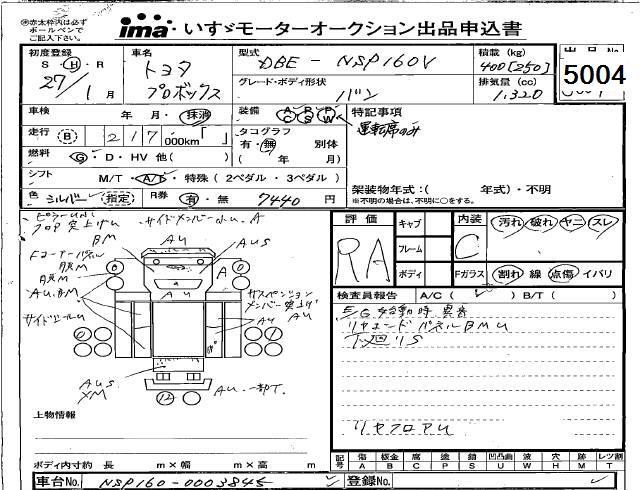 ※赤太枠内は必ず
ボールペンで
ご記入下さい。
ima いすゞモーターオークション出品申込書
初度登録
S・H・R
27/1月
車名
トヨタ
プロボックス
型式
DBE-NSP160V
グレード・ボディ形状
バン
積載(kg)
400[250]
排気量(cc)
1,320
出品No
5004
車検
年 月・抹消
装備
A/C P/S P/W
特記事項
運転席のみ
走行
B 217,000km「 」
タコグラフ
有・無 別体
( 年 月)
燃料
G・D・HV 他( )
シフト
M/T・A/T・特殊(2ペダル・3ペダル)
架装物年式:( 年式)・不明
※不明の場合は、不明に○をする。
色 シルバー (指定)
R券 有・無 7440 円
サイドメンバー小U.A
BM
AU
AUS
Fコーナーパネル
AU.BM
A
AU
サイドシールU
サスペンション
メンバー突上げ
AU
AU
AUS
XM
AU.一部T.
12
上物情報
ボディ内寸約 長 m×幅 m×高 m
評価
RA
キャブ
フレーム
ボディ
内装
C
汚れ・破れ・ヤニ・スレ
Fガラス
割れ・線・点傷・イバリ
検査員報告 A/C( ✓ ) B/T( )
E/G始動時異音
リヤエンドパネルBMU
下廻りS
リヤフロアU
記号
傷 板金 腐 塗 錆 凹凸曲 波 穴 跡 レツ割
A B C P S U W H M T
車台No. NSP160-0003845
登録No.